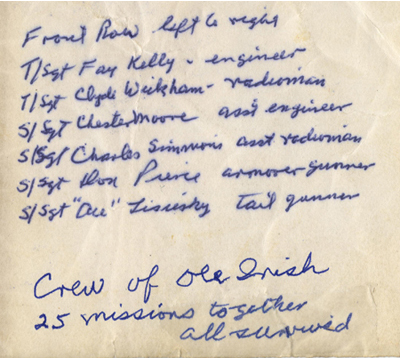 Front Row left to right
T/Sgt Fay Kelly - engineer
T/Sgt Clyde Wickham - radioman
S/Sgt Chester Moore asst engineer
S/Sgt Charles Simmons asst radioman
S/Sgt Don Pierce armorer gunner
S/Sgt tail gunner
Crew of Ole Irish
25 missions together
all survived